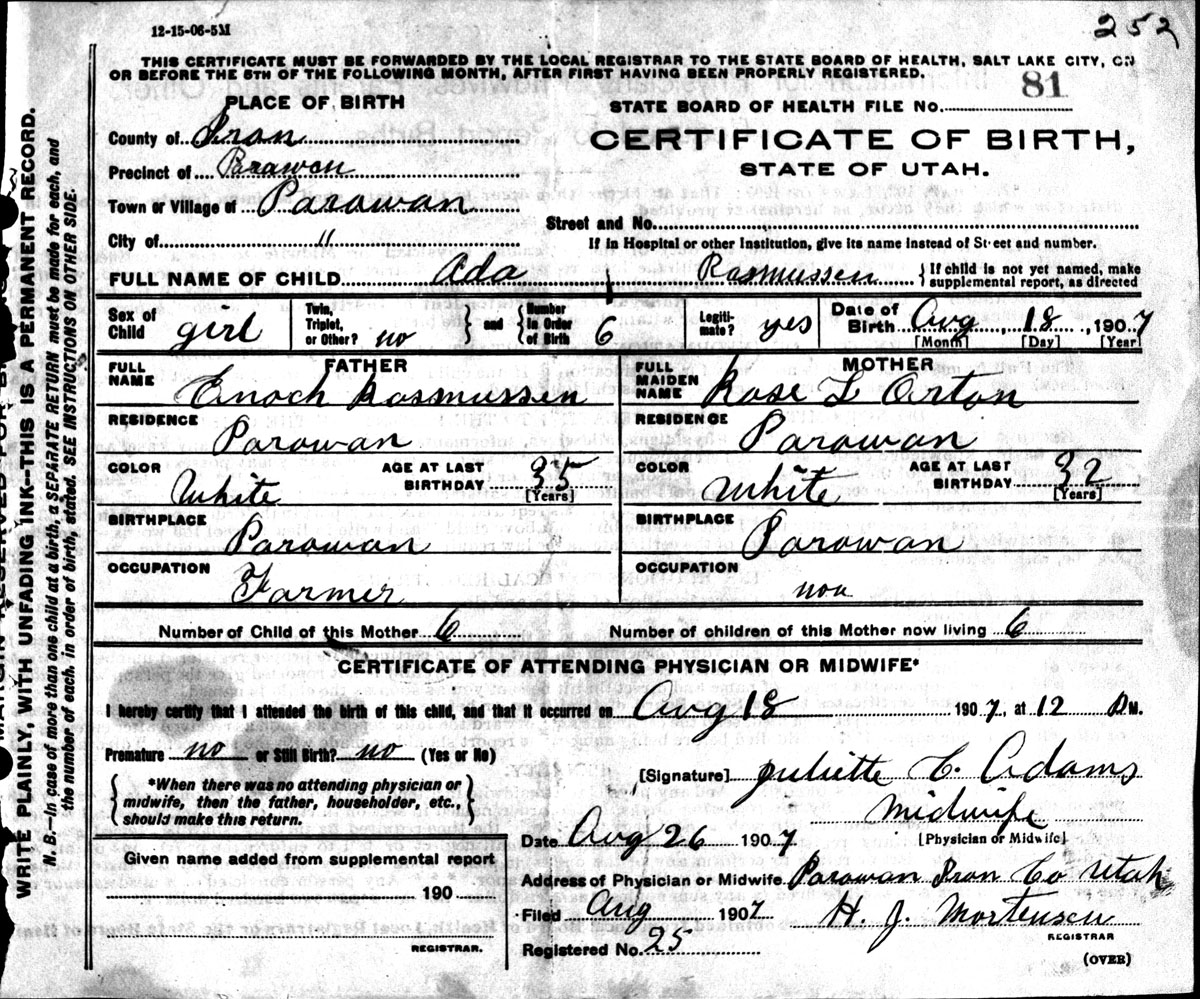 12-15-06-5M
252
THIS CERTIFICATE MUST BE FORWARDED BY THE LOCAL REGISTRAR TO THE STATE BOARD OF HEALTH, SALT LAKE CITY, ON
OR BEFORE THE 5TH OF THE FOLLOWING MONTH, AFTER FIRST HAVING BEEN PROPERLY REGISTERED.
PLACE OF BIRTH
STATE BOARD OF HEALTH FILE NO. 81
County of Iron
CERTIFICATE OF BIRTH,
Precinct of Parawen
STATE OF UTAH.
Town or Village of Parowan
Street and No.
City of "
If in Hospital or other Institution, give its name instead of Street and number.
FULL NAME OF CHILD Ada Rasmussen } If child is not yet named, make
supplemental report, as directed
Sex of Child girl
Twin, Triplet, or Other? no } and { Number in Order of Birth 6
Legitimate? yes
Date of Birth Aug, 18, 1907
[Month] [Day] [Year]
FATHER
FULL NAME Enoch Rasmussen
MOTHER
FULL MAIDEN NAME Rose L Orton
RESIDENCE Parowan
RESIDENCE Parowan
COLOR White AGE AT LAST BIRTHDAY 35 [Years]
COLOR White AGE AT LAST BIRTHDAY 32 [Years]
BIRTHPLACE Parowan
BIRTHPLACE Parowan
OCCUPATION Farmer
OCCUPATION
Number of Child of this Mother 6
Number of children of this Mother now living 6
CERTIFICATE OF ATTENDING PHYSICIAN OR MIDWIFE*
I hereby certify that I attended the birth of this child, and that it occurred on Aug 18 1907, at 12 M.
Premature no or Still Birth? no (Yes or No)
[Signature] Juliette C. Adams
{ *When there was no attending physician or
midwife, then the father, householder, etc.,
should make this return. }
midwife
Date Aug 26 1907 [Physician or Midwife]
Given name added from supplemental report
Address of Physician or Midwife Parowan Iron Co Utah
190
Filed Aug 1907 H. J. Mortensen
REGISTRAR.
REGISTRAR
Registered No. 25
(OVER)
MARGIN RESERVED FOR BINDING
WRITE PLAINLY, WITH UNFADING INK--THIS IS A PERMANENT RECORD.
N. B.--In case of more than one child at a birth, a SEPARATE RETURN must be made for each, and
the number of each, in order of birth, stated. SEE INSTRUCTIONS ON OTHER SIDE.